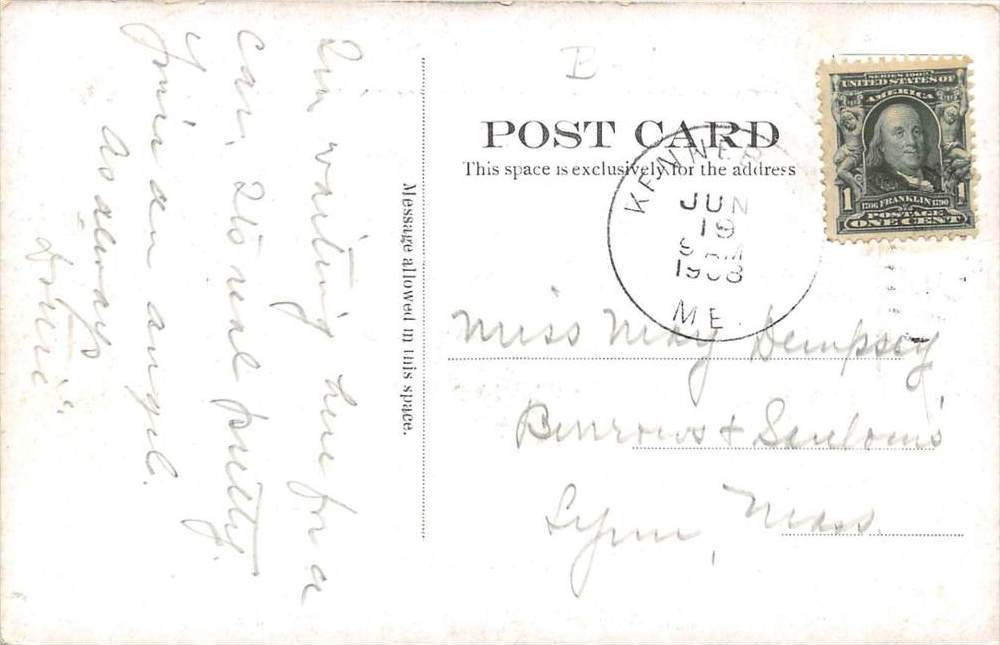 I'm waiting here for a
car. It's real pretty.
You're an angel.
As always
Message allowed in this space.
B
POST CARD
This space is exclusively for the address
SERIES 1902
UNITED STATES OF
AMERICA
1 1
1706 FRANKLIN 1790
POSTAGE
ONE CENT
KENNEB
JUN
19
9 AM
1908
ME.
Miss May Dempsey,
Burrows & Sanborn's
Lynn, Mass.